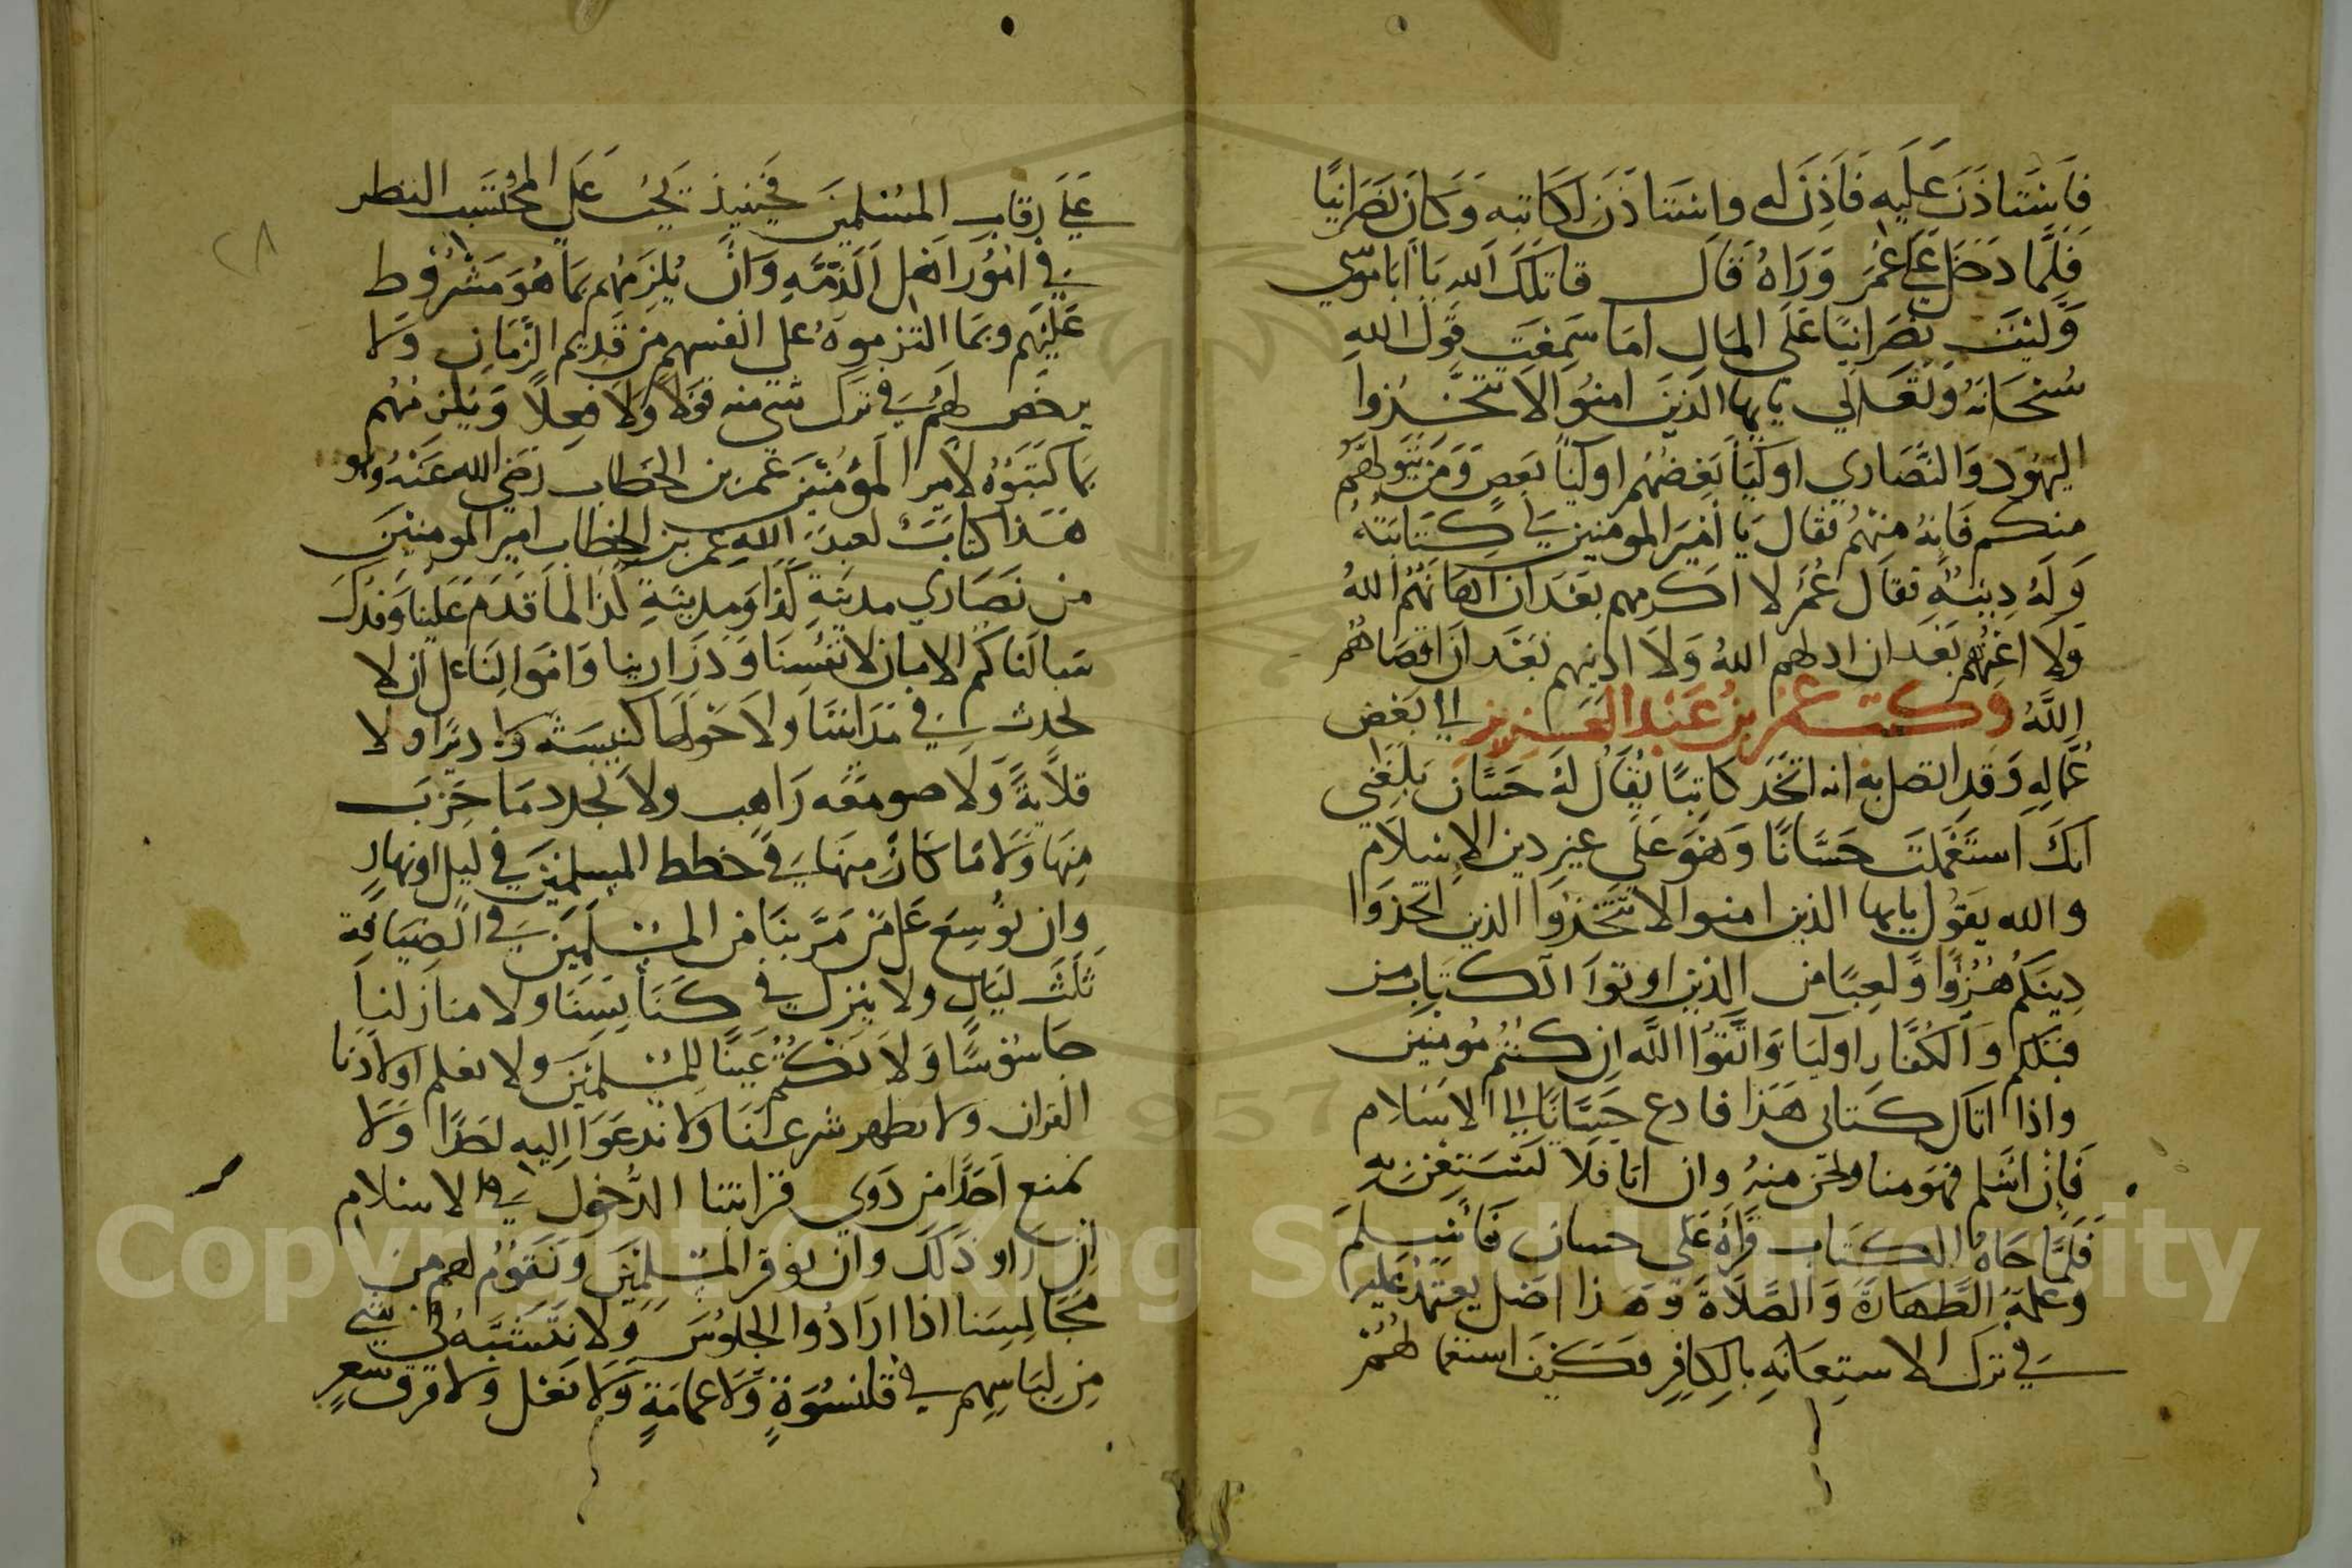 فاستاذن عليه فاذن له واستاذن لكاتبه وكان نصرانيا
فلما دخل على عمر وراه قال قاتلك الله يا ابا موسى
وليت نصرانيا على المال اما سمعت قول الله
سبحانه وتعالى يايها الذين امنوا لا تتخذوا
اليهود والنصارى اوليا بعضهم اوليا بعض ومن يتولهم
منكم فانه منهم فقال يا امير المومنين لي كتابته
وله دينه فقال عمر لا اكرمهم بعد ان اهانهم الله
ولا اعزهم بعد ان اذلهم الله ولا ادنيهم بعد ان اقصاهم
الله وكتب عمر بن عبد العزيز الى بعض
عماله وقد اتصل به انه اتخذ كاتبا يقال له حسان بلغني
انك استعملت حسانا وهو على غير دين الاسلام
والله يقول يايها الذين امنوا لا تتخذوا الذين اتخذوا
دينكم هزوا ولعبا من الذين اوتوا الكتاب من
قبلكم والكفار اوليا واتقوا الله ان كنتم مومنين
واذا اتاك كتابي هذا فادع حسانا الى الاسلام
فان اسلم فهو منا ونحن منه وان ابا فلا تستعن به
فلما جاه الكتاب قراه على حسان فاسلم
وعلمه الطهارة والصلاة وهذا اصل يعتمد عليه
في ترك الاستعانه بالكافر فكيف استعمالهم
على رقاب المسلمين فحينيذ يجب على المحتسب النظر
في امور اهل الذمه وان يلزمهم بما هو مشروط
عليهم وبما التزموه على انفسهم من قديم الزمان ولا
يرخص لهم في ترك شي منه قولا ولا فعلا ويلزمهم
بما كتبوه لامير المؤمنين عمر بن الخطاب رضي الله عنه وهو
هذا كتاب لعبد الله عمر بن الخطاب امير المومنين
من نصارى مدينة كذا ومدينة كذا لما قدم علينا وفدك
سالناكم الامان لانفسنا وذرارينا واموالنا على ان لا
نحدث في مداينا ولا حولها كنيسه ولا ديرا ولا
قلاية ولا صومعه راهب ولا نجدد ما خرب
منها ولا ما كان منها في خطط المسلمين في ليل او نهار
وان نوسع على من مر بنا من المسلمين في الضيافة
ثلث ليال ولا ينزل في كنايسنا ولا منازلنا
جاسوسا ولا نكتم عينا للمسلمين ولا نعلم اولادنا
القران ولا نظهر شرعنا ولا ندعوا اليه احدا ولا
نمنع احدا من ذوي قرابتنا الدخول في الاسلام
ان ارادو ذلك وان نوقر المسلمين ونقوم لهم من
مجالسنا اذا ارادوا الجلوس ولا نتشبه في شي
من لباسهم في قلنسوة ولا عمامة ولا نعل ولا فرق شعر
٢٨
Copyright © King Saud University
1957